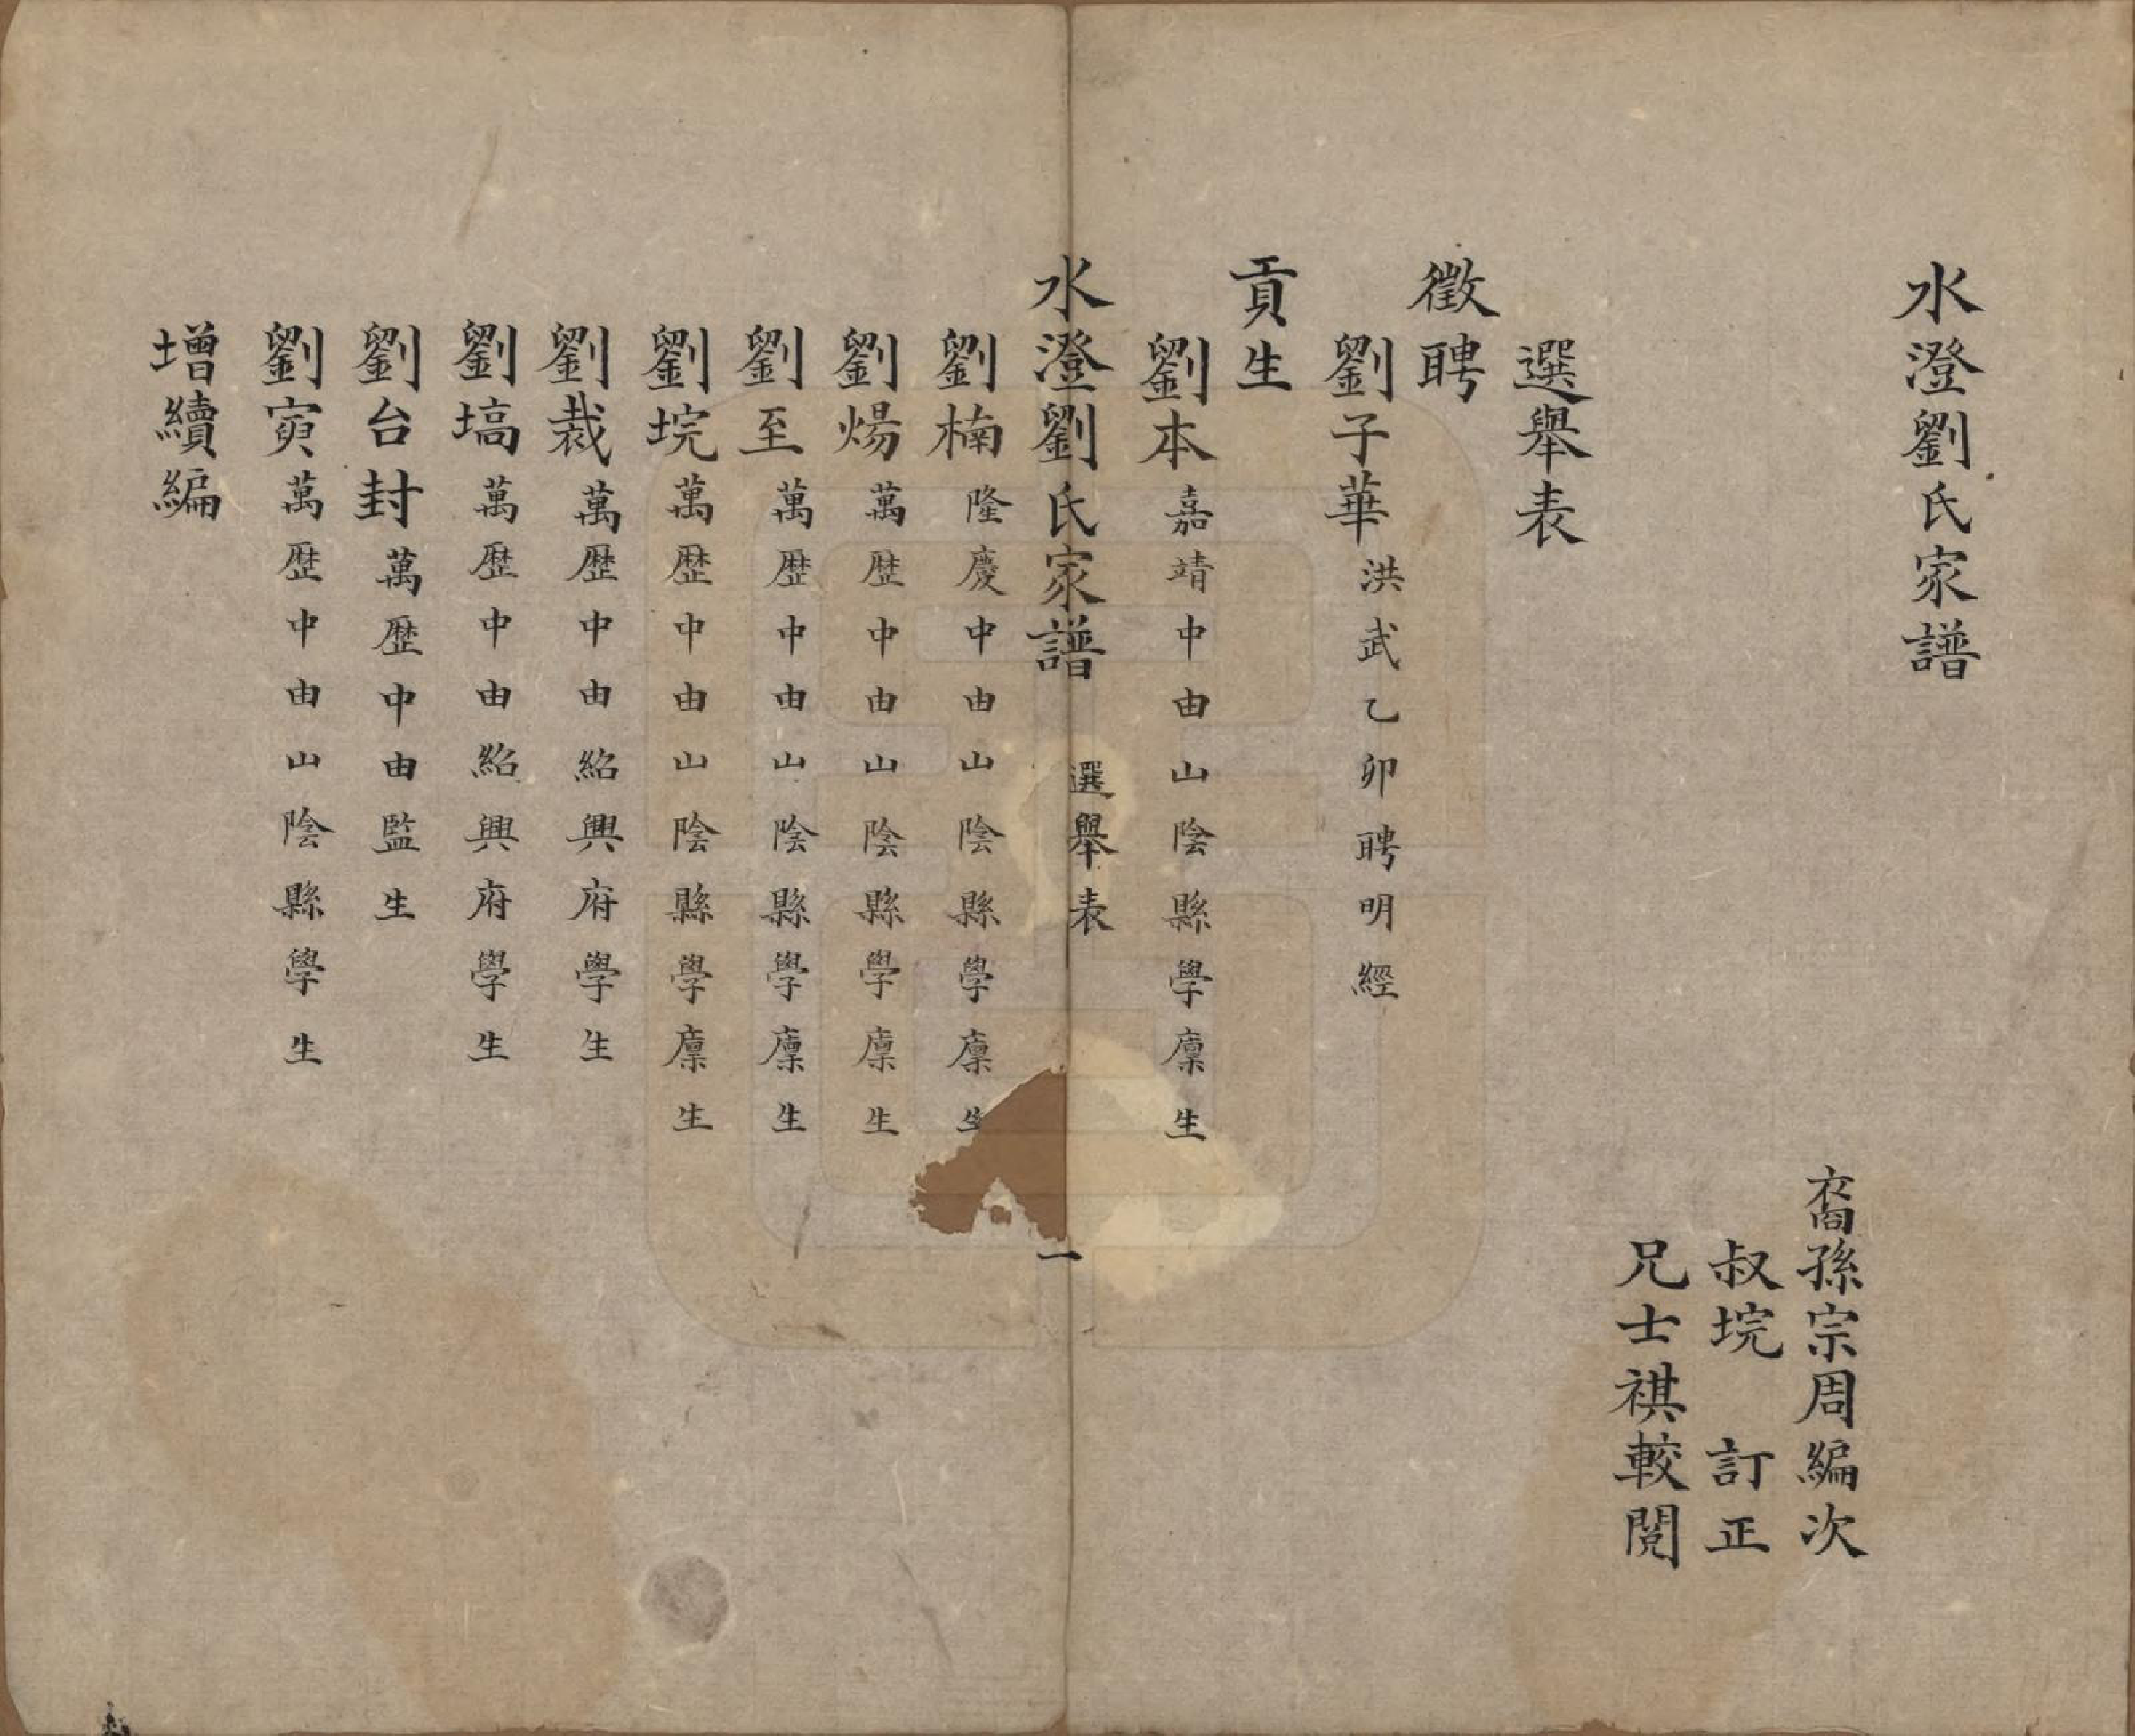 水澄劉氏家譜
裔孫宗周編次
叔垸 訂正
兄士祺較閱
選舉表
徵聘
劉子華 洪武乙卯聘明經
貢生
劉本 嘉靖中由山陰縣學廩生
水澄劉氏家譜 選舉表 一
劉楠 隆慶中由山陰縣學廩生
劉煬 萬歷中由山陰縣學廩生
劉至 萬歷中由山陰縣學廩生
劉垸 萬歷中由山陰縣學廩生
劉裁 萬歷中由紹興府學生
劉塙 萬歷中由紹興府學生
劉台封 萬歷中由監生
劉寅 萬歷中由山陰縣學生
增續編